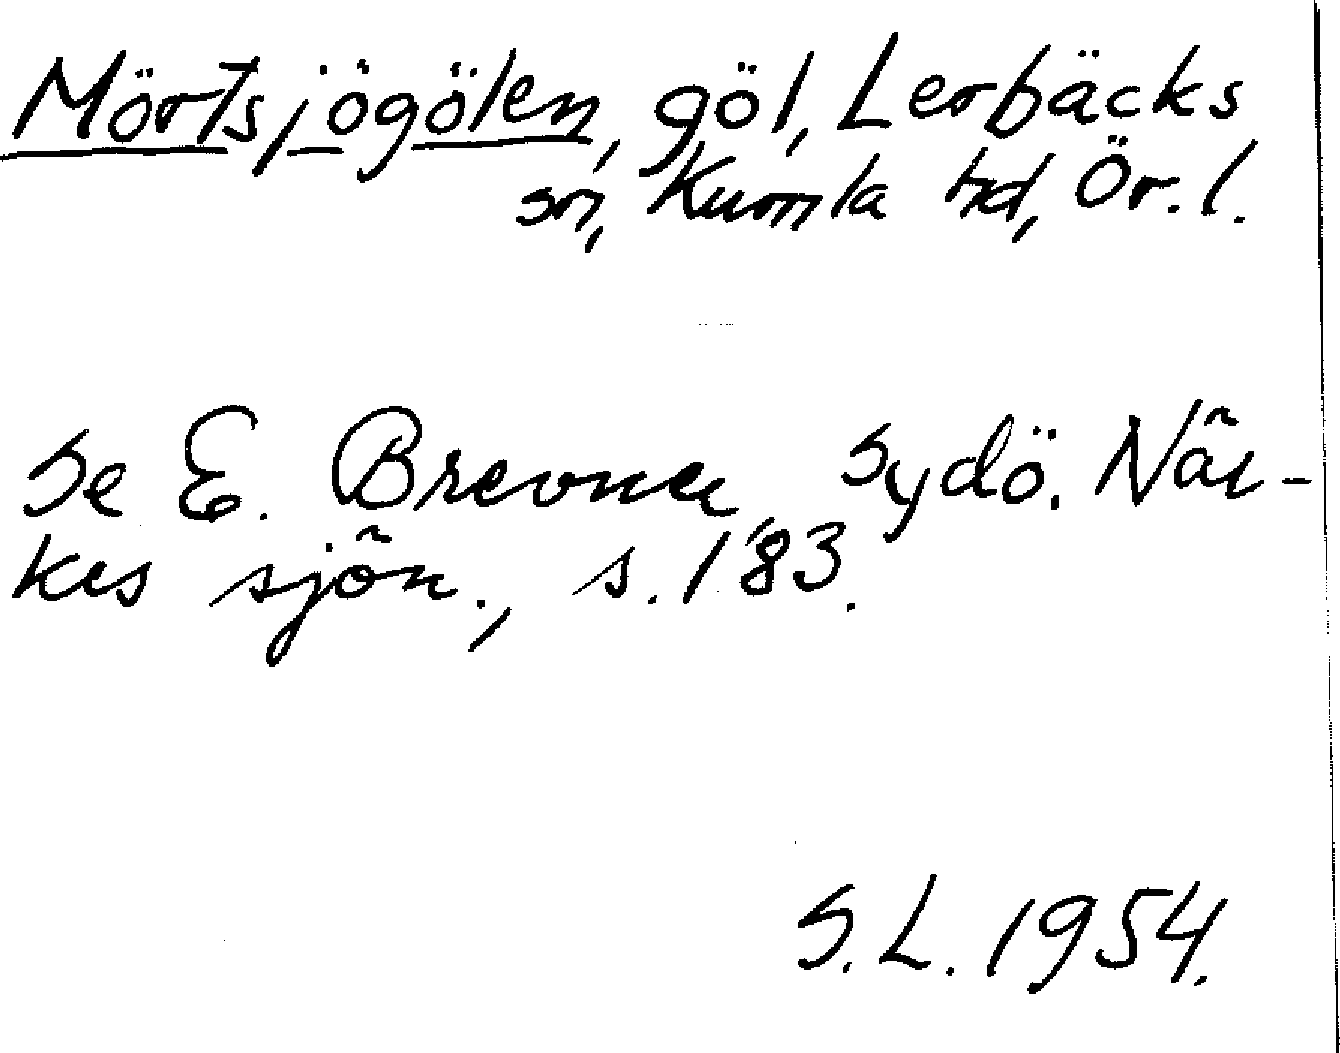 Mörtsjögölen, göl, Lerbäcks
sn, Kumla hd, Ör. l.
Se E. Brevner Sydö. När-
kes sjön., s. 183.
S. L. 1954.